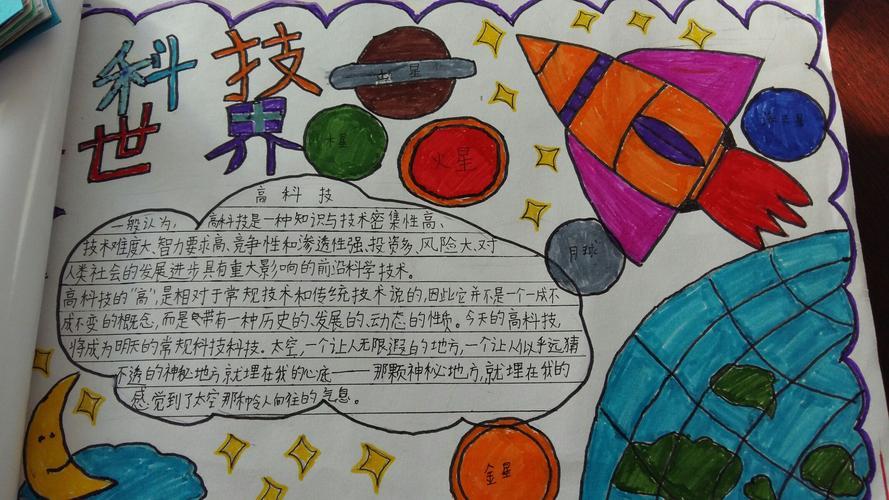 科技
世界
土星
木星
火星
海王星
月球
高科技
一般认为，高科技是一种知识与技术密集性高、
技术难度大、智力要求高、竞争性和渗透性强、投资多、风险大、对
人类社会的发展进步具有重大影响的前沿科学技术。
高科技的“高”，是相对于常规技术和传统技术说的，因此它并不是一个一成不
成不变的概念，而是带有一种历史的、发展的、动态的性质。今天的高科技，
将成为明天的常规科技科技。太空，一个让人无限遐的地方，一个让人似乎远猜
不透的神秘地方，就埋在我的心底——那颗神秘地方，就埋在我的
感觉到了太空那种令人向往的气息。
金星